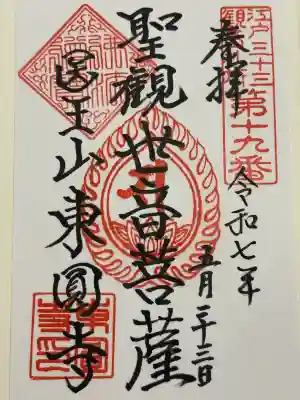 江戸三十三
観音
第十九番
奉拝
令和七年
五月二十三日
聖觀世音菩薩
医王山東圓寺